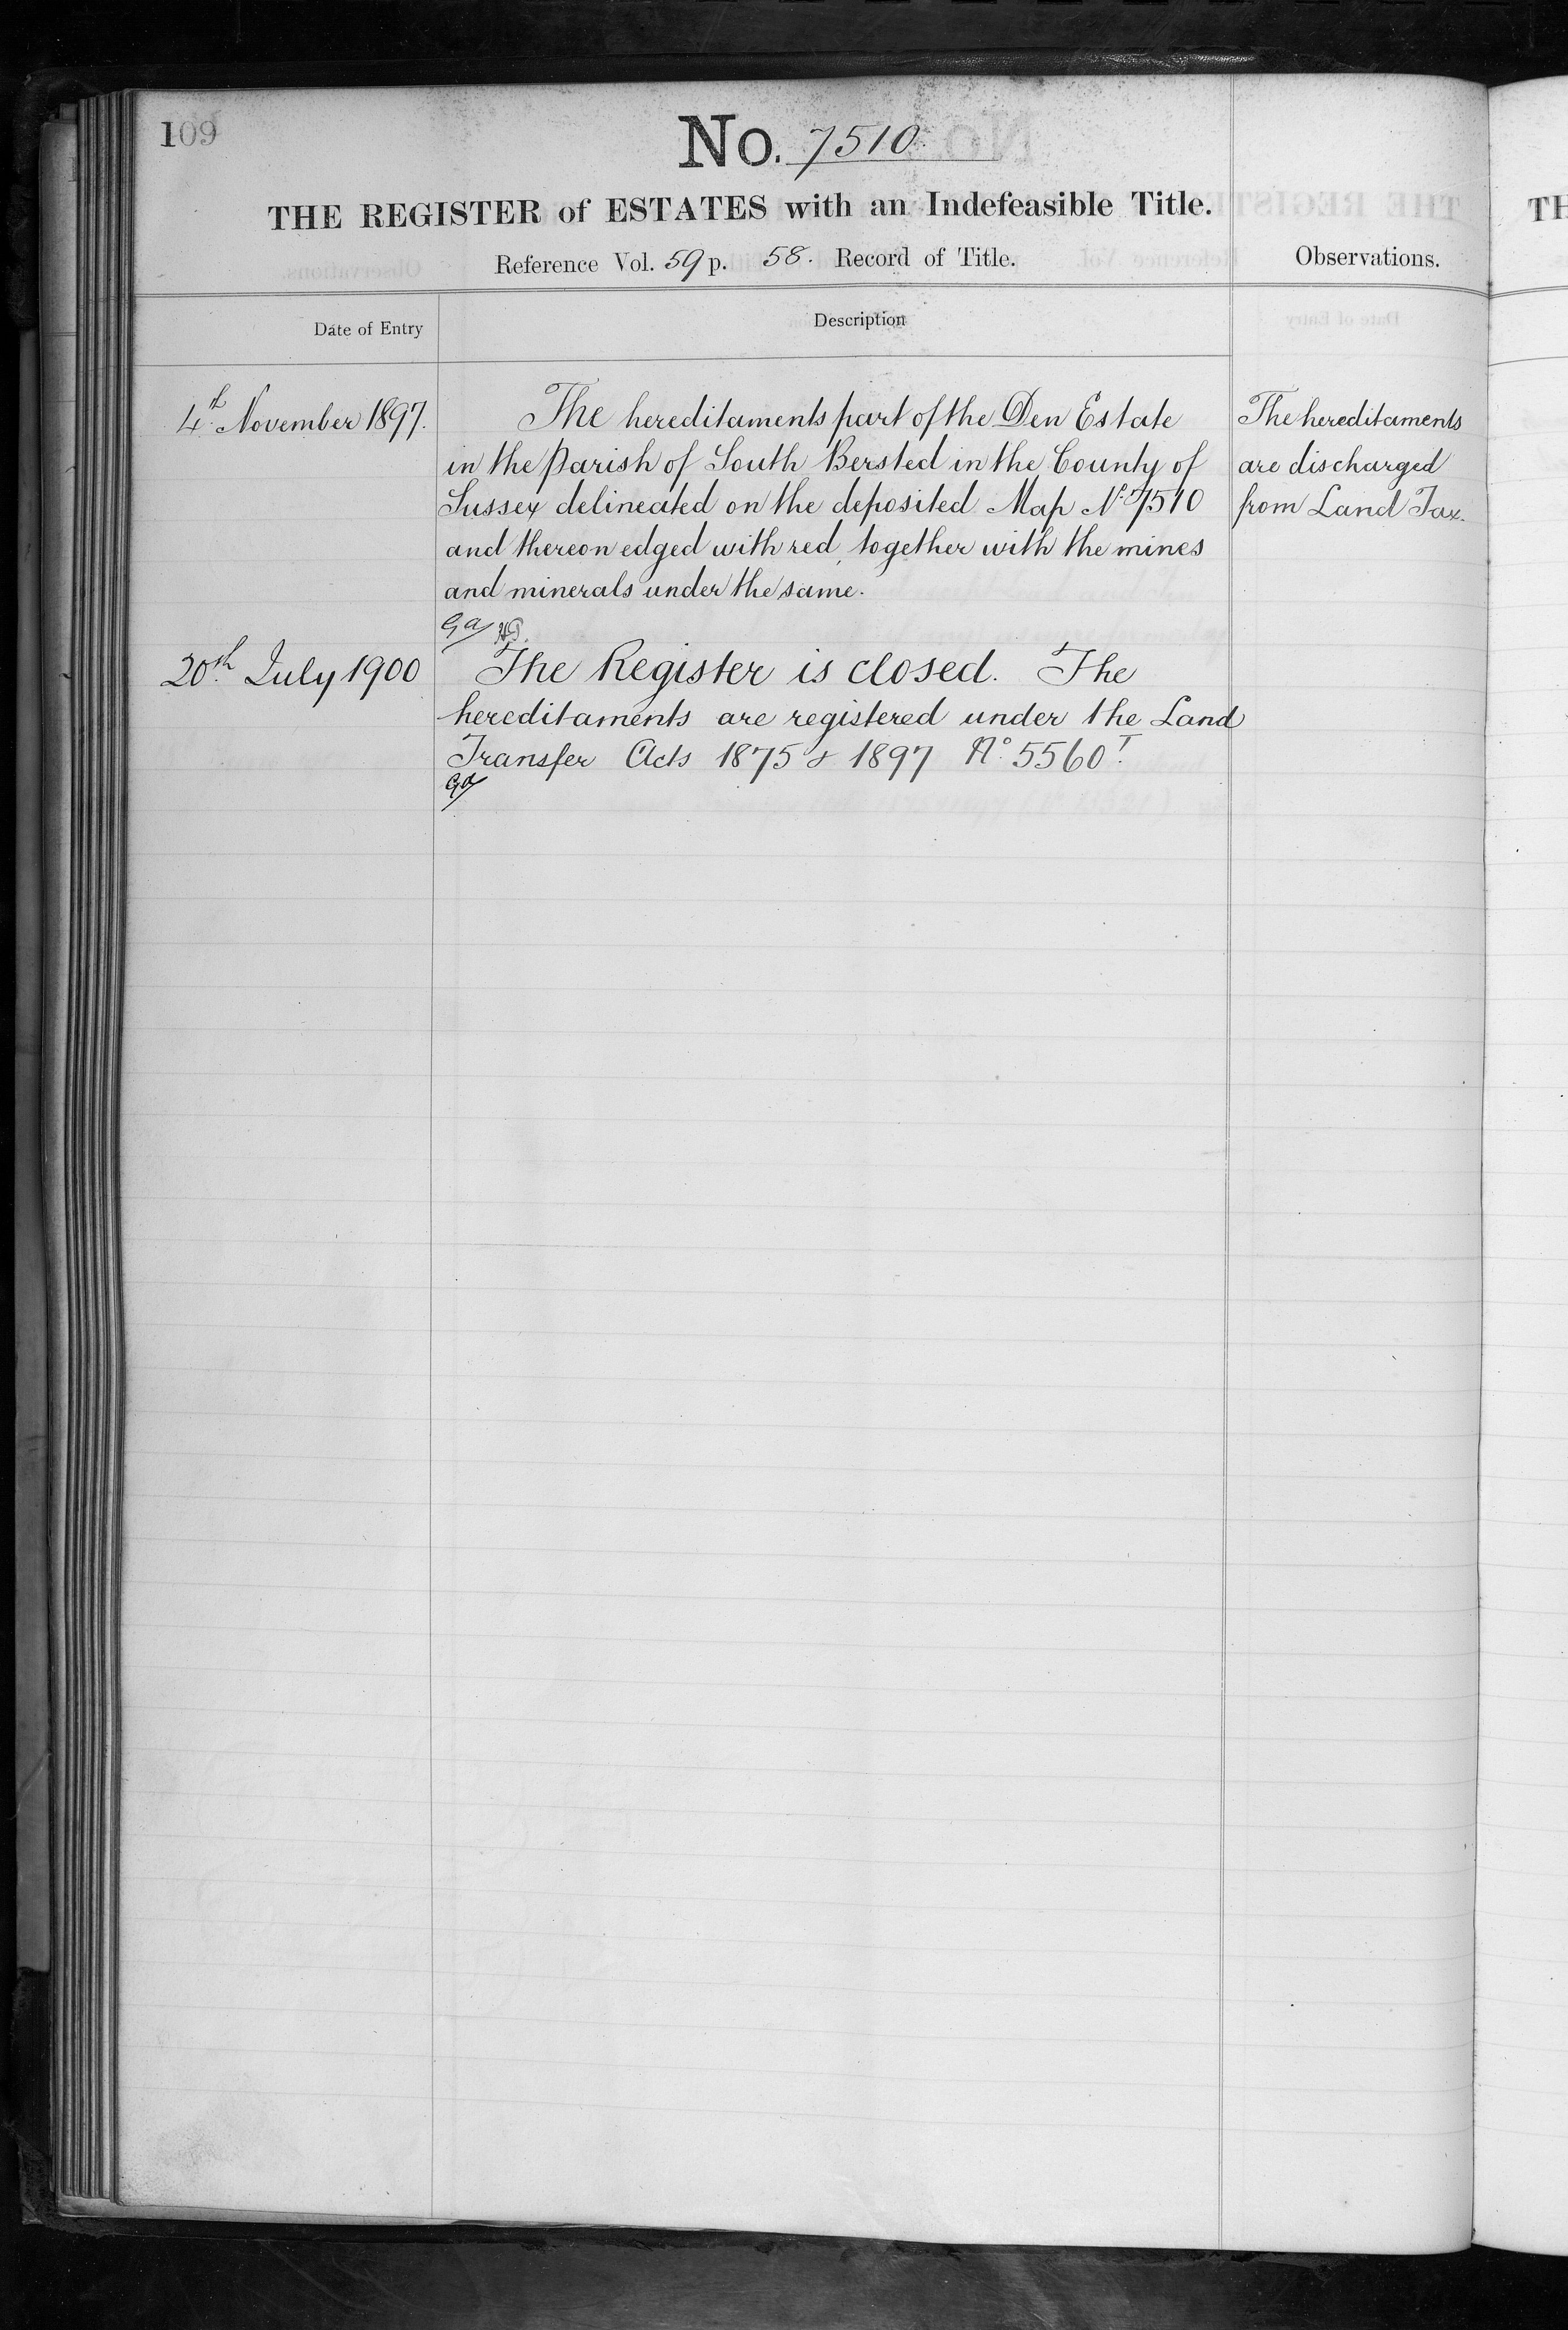 109
No. 7510.
THE REGISTER of ESTATES with an Indefeasible Title.
Reference Vol. 59 p. 58. Record of Title.
Observations.
Date of Entry
Description
4th November 1897.
The hereditaments part of the Den Estate
in the parish of South Bersted in the County of
Sussex delineated on the deposited Map No 7510
and thereon edged with red, together with the mines
and minerals under the same.
The hereditaments
are discharged
from Land Tax.
20th July 1900
The Register is closed. The
hereditaments are registered under the Land
Transfer Acts 1875 & 1897 No 5560T.
TH